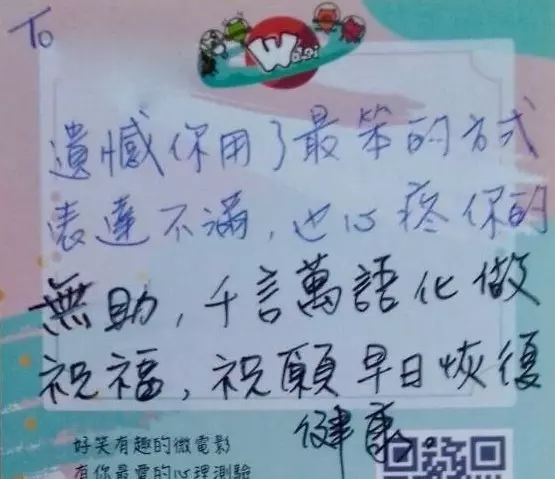 To
Wogi
遺憾你用了最笨的方式
表達不滿,也心疼你的
無助,千言萬語化做
祝福,祝願早日恢復
健康。
好笑有趣的微電影
有你最愛的心理測驗